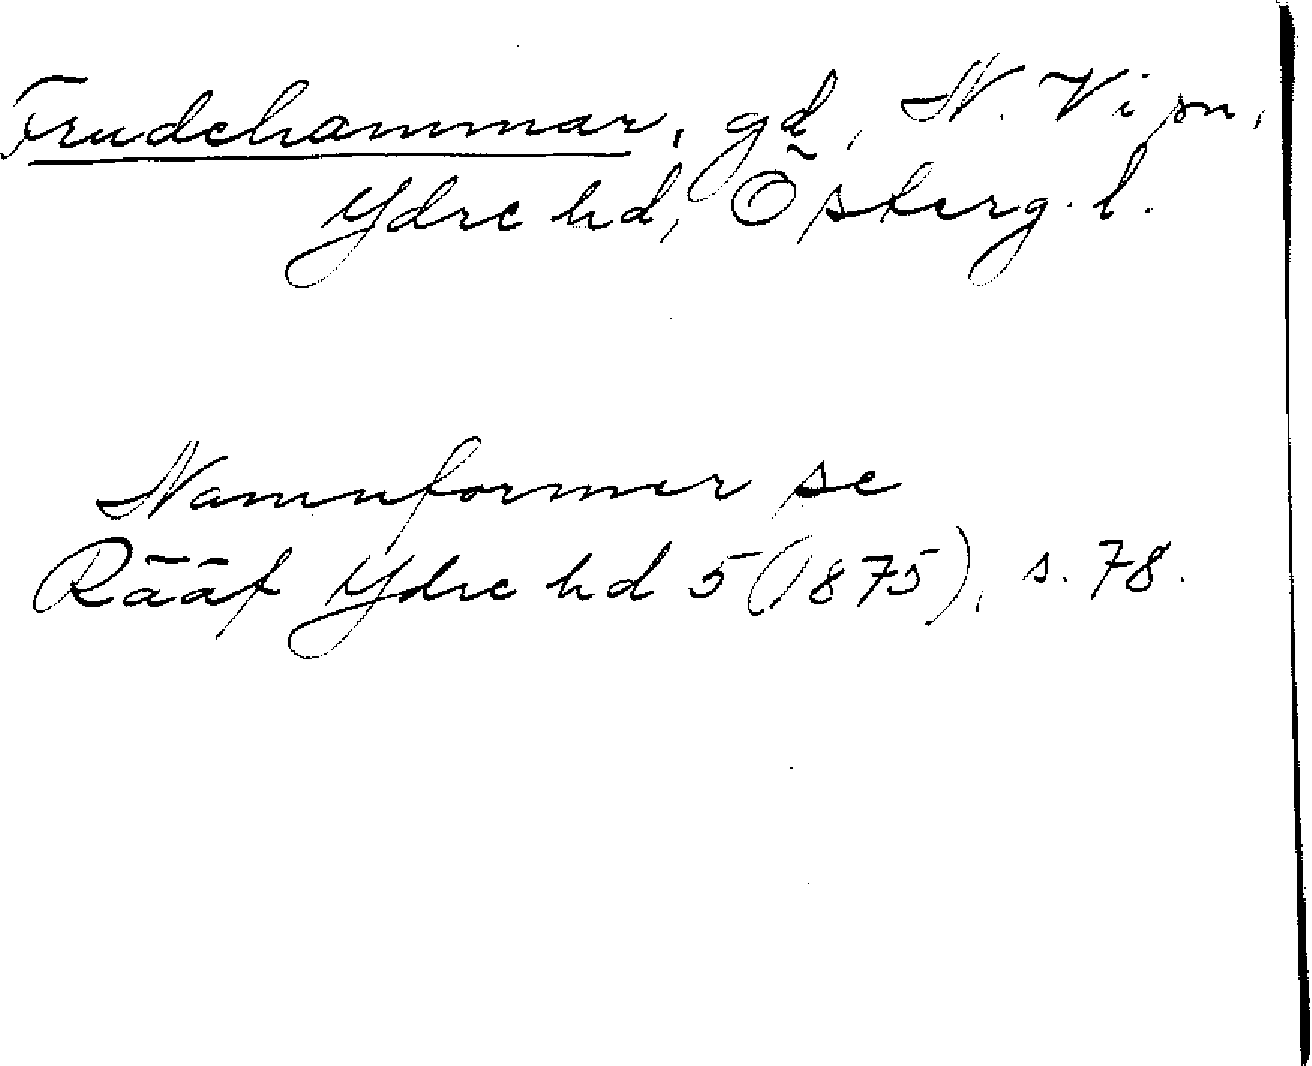 Frudehammar, gd, N. Vi sn,
Ydre hd, Österg. l.
Namnformer se
Rääf Ydre hd 5 (1875), s. 78.